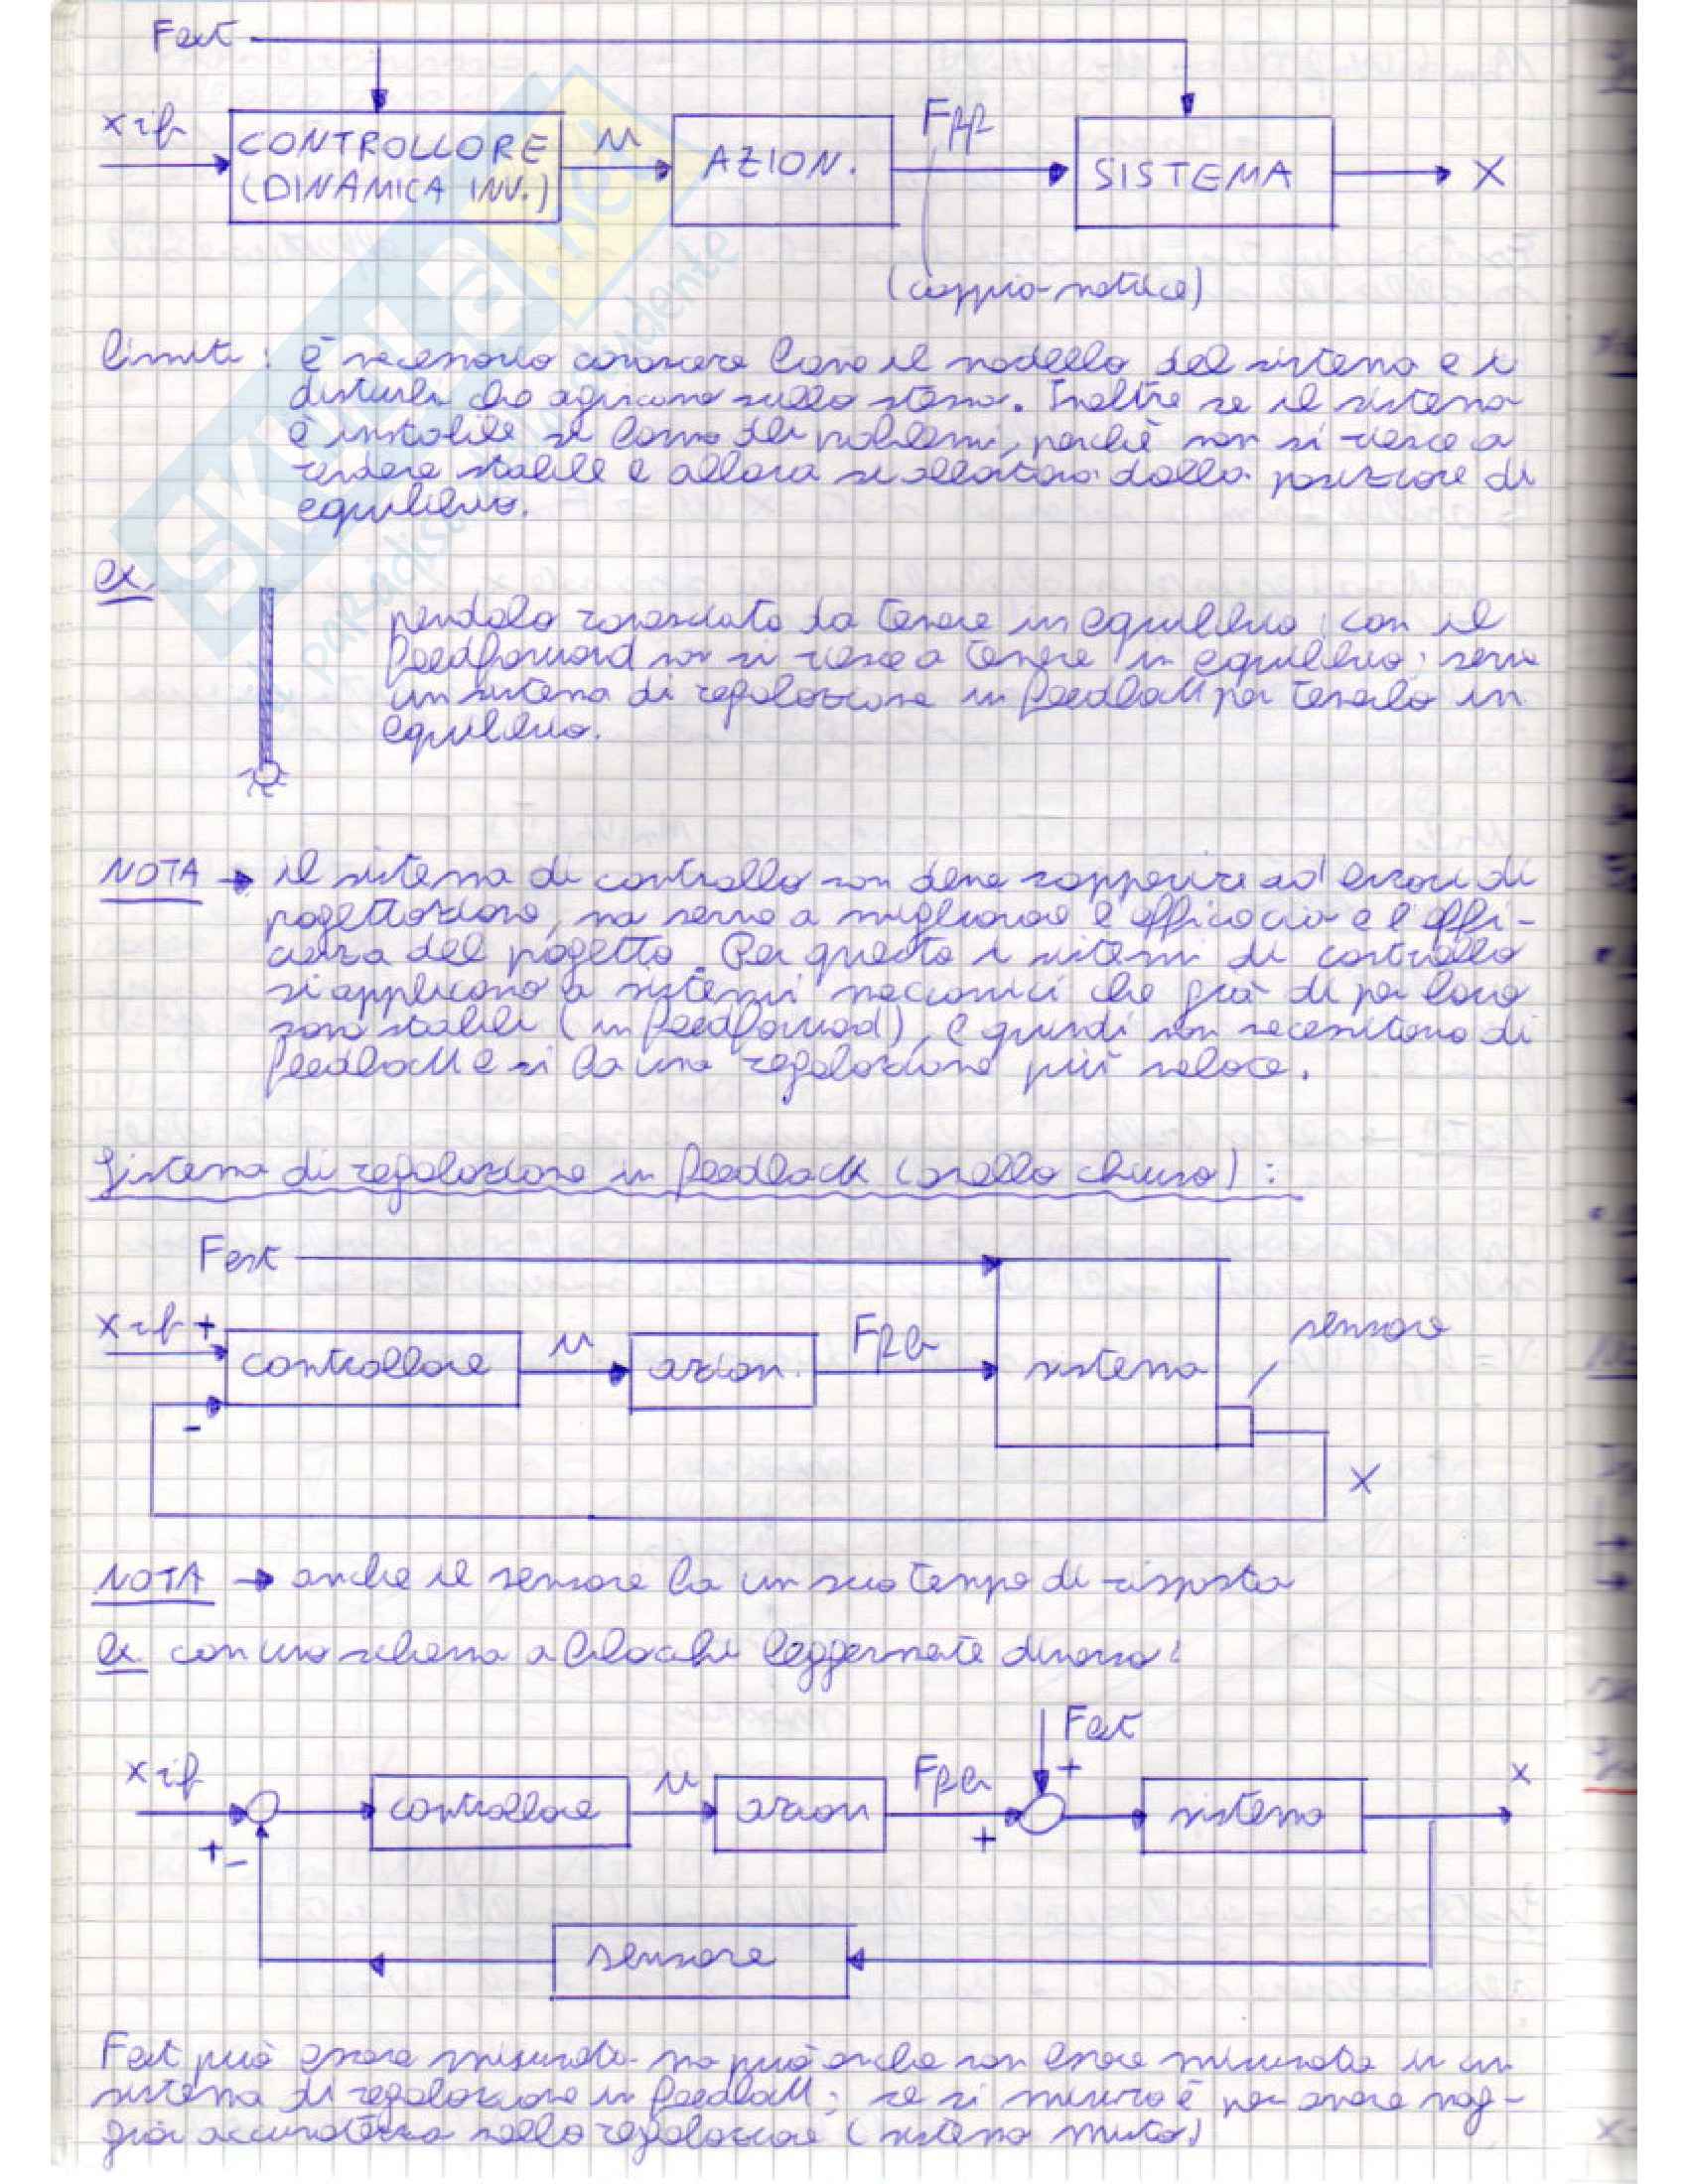 Fest
xrif
CONTROLLORE
(DINAMICA INV.)
u
AZION.
Fff
SISTEMA
X
(coppia motrice)
limiti: è necessario conoscere bene il modello del sistema e i
disturbi che agiscono sullo stesso. Inoltre se il sistema
è instabile si hanno dei problemi, perchè non si riesce a
rendere stabile e allora si allontana dalla posizione di
equilibrio.
ex
pendolo rovesciato da tenere in equilibrio: con il
feedforward non si riesce a tenere in equilibrio; serve
un sistema di regolazione in feedback per tenerlo in
equilibrio.
NOTA → il sistema di controllo non deve sopperire ad errori di
progettazione, ma serve a migliorare l'efficacia e l'effi-
cienza del progetto. Per questo i sistemi di controllo
si applicano a sistemi meccanici che già di per loro
sono stabili (in feedforward), e quindi non necessitano di
feedback e si ha una regolazione più veloce.
Sistema di regolazione in feedback (anello chiuso):
Fest
xrif +
controllore
u
azion.
Ffb
sistema
sensore
-
X
NOTA → anche il sensore ha un suo tempo di risposta
ex con uno schema a blocchi leggermente diverso:
Fest
xrif
controllore
u
azion
Ffb
+
sistema
x
+ -
+
sensore
Fest può essere misurata ma può anche non essere misurata in un
sistema di regolazione in feedback; se si misura è per avere mag-
gior accuratezza nella regolazione (sistema misto)
SKUOLA.net
il paradiso dello studente